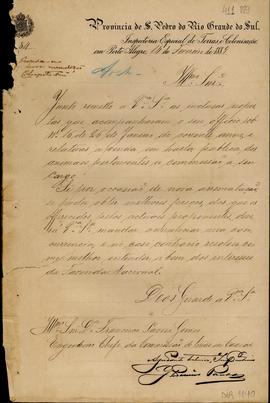 411 883
Provincia de S. Pedro do Rio Grande do Sul.
Inspectoria Especial de Terras e Colonisação
em Porto Alegre, de Fevereiro de 188
Illmo. Snr.
Junto remetto a V.ª S.ª as inclusas propos-
tas que acompanharam o seu officio sob
Nº 16 de 26 de Janeiro do corrente anno, e
relativas a venda em hasta publica dos
animaes pertencentes a commissão a seu
cargo.
Se por occasião de nova arrematação
se poder obter melhores preços, dos que os
offerecidos pelos actuaes proponentes, de-
V.ª S.ª mandar
currencia, e no caso contrario resolva co-
mo melhor entender a bem dos interesses
da Fazenda Nacional.
Deos Guarde a V.ª S.ª
Illmo. Snr. Dr. Francisco
Engenheiro Chefe da Commissão de